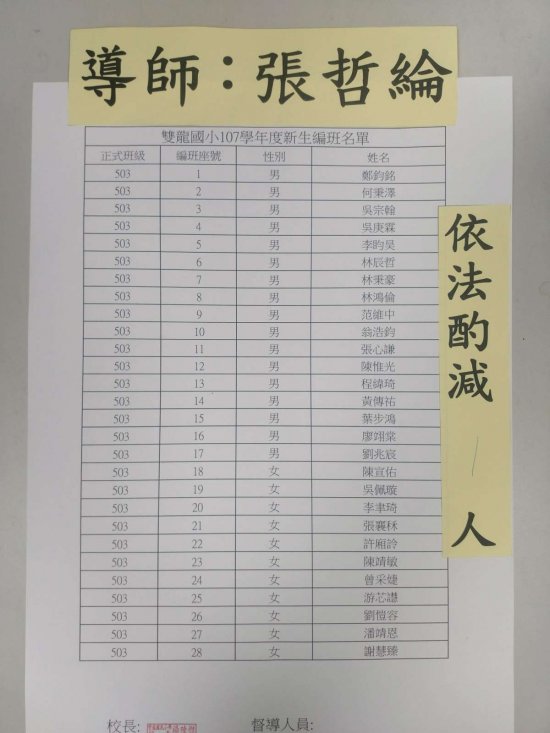 導師：張哲綸
雙龍國小107學年度新生編班名單
正式班級 編班座號 性別 姓名
503 1 男 鄭鈞銘
503 2 男 何秉澤
503 3 男 吳宗翰
503 4 男 吳庚霖
503 5 男 李昀昊
503 6 男 林辰哲
503 7 男 林秉豪
503 8 男 林鴻倫
503 9 男 范維中
503 10 男 翁浩鈞
503 11 男 張心謙
503 12 男 陳惟光
503 13 男 程緯琦
503 14 男 黃傳祐
503 15 男 葉步鴻
503 16 男 廖翊棠
503 17 男 劉兆宸
503 18 女 陳宣佑
503 19 女 吳佩璇
503 20 女 李聿琦
503 21 女 張襄秝
503 22 女 許廂詅
503 23 女 陳靖敏
503 24 女 曾采婕
503 25 女 游芯譿
503 26 女 劉愷容
503 27 女 潘靖恩
503 28 女 謝慧臻
依法酌減 人
校長: 督導人員: